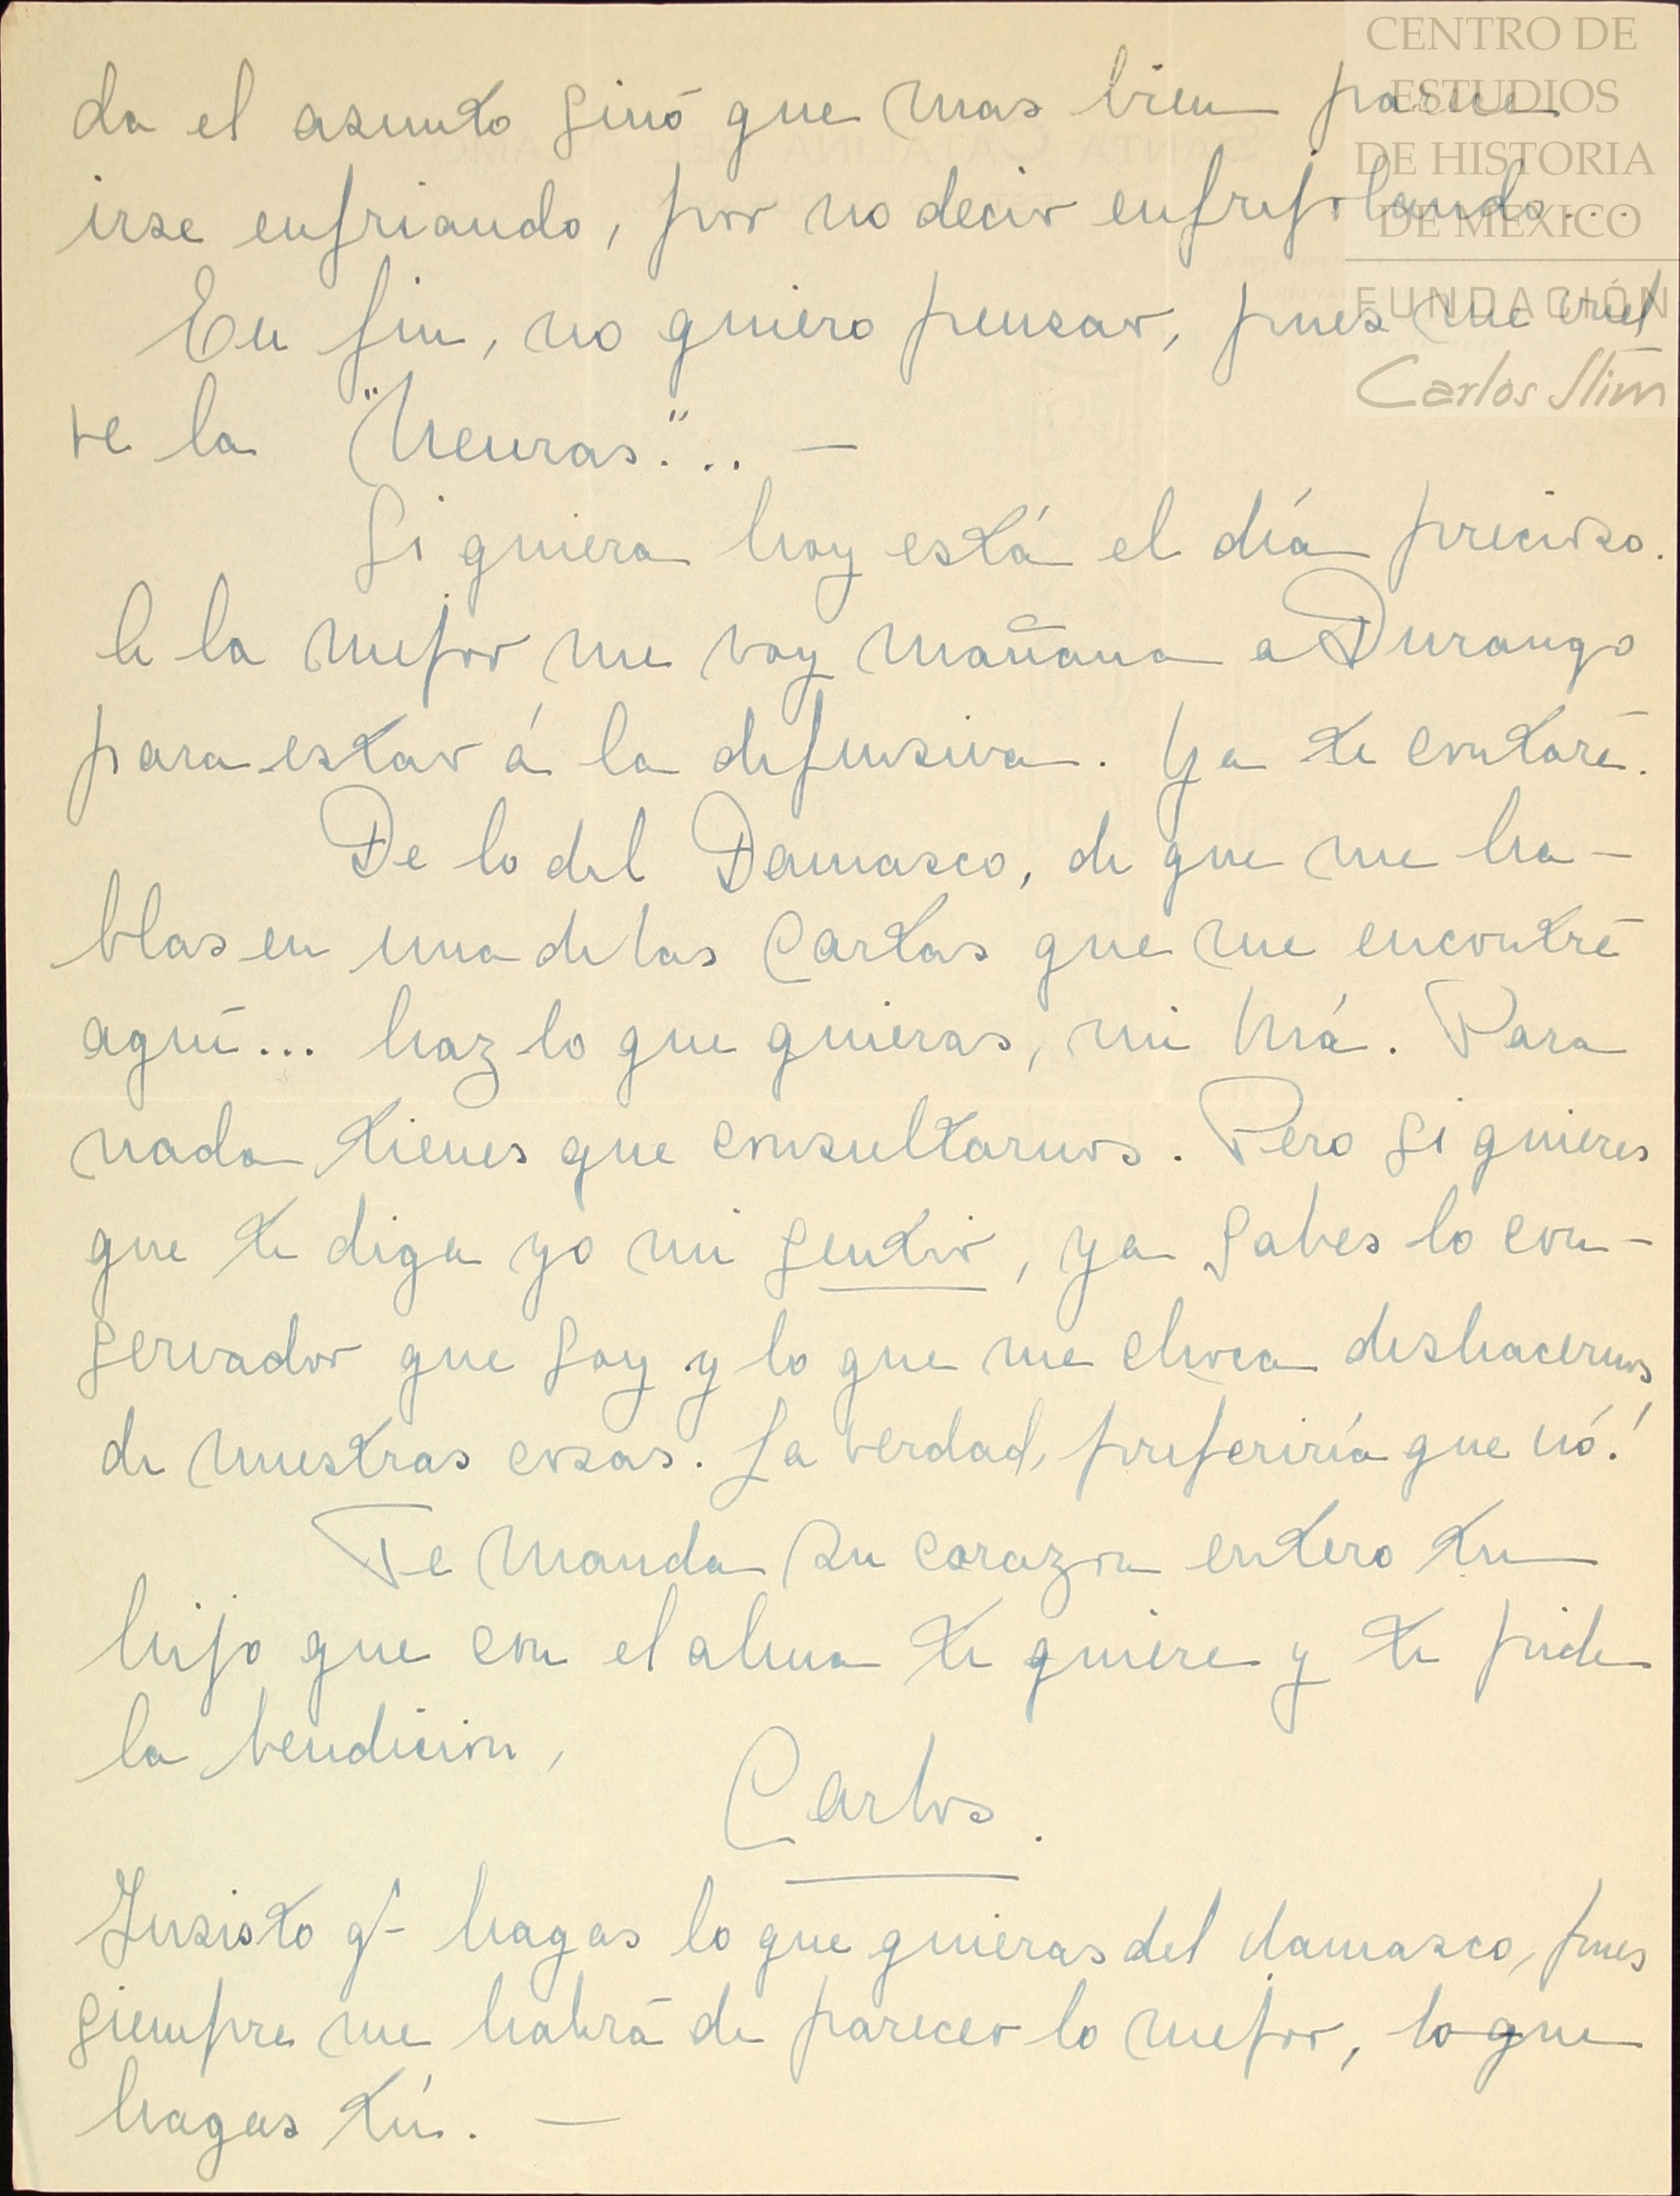 CENTRO DE
ESTUDIOS
DE HISTORIA
DE MÉXICO
FUNDACIÓN
Carlos Slim
da el asunto sinó que mas bien parece
irse enfriando, por no decir enfrijolando...
En fin, no quiero pensar, pues me vuel
ve la "Neuras"... —
Siquiera hoy está el día precioso.
A la mejor me voy mañana a Durango
para estar á la defensiva. Ya te contaré.
De lo del Damasco, de que me ha-
blas en una de las cartas que me encontré
aquí... haz lo que quieras, mi Má. Para
nada tienes que consultarnos. Pero si quieres
que te diga yo mi sentir, ya sabes lo con-
servador que soy y lo que me choca deshacernos
de nuestras cosas. La verdad, preferiría que nó!
Te manda su corazon entero tu
hijo que con el alma te quiere y te pide
la bendicion,
Carlos.
Insisto q' hagas lo que quieras del damasco, pues
siempre me habrá de parecer lo mejor, lo que
hagas tú. —